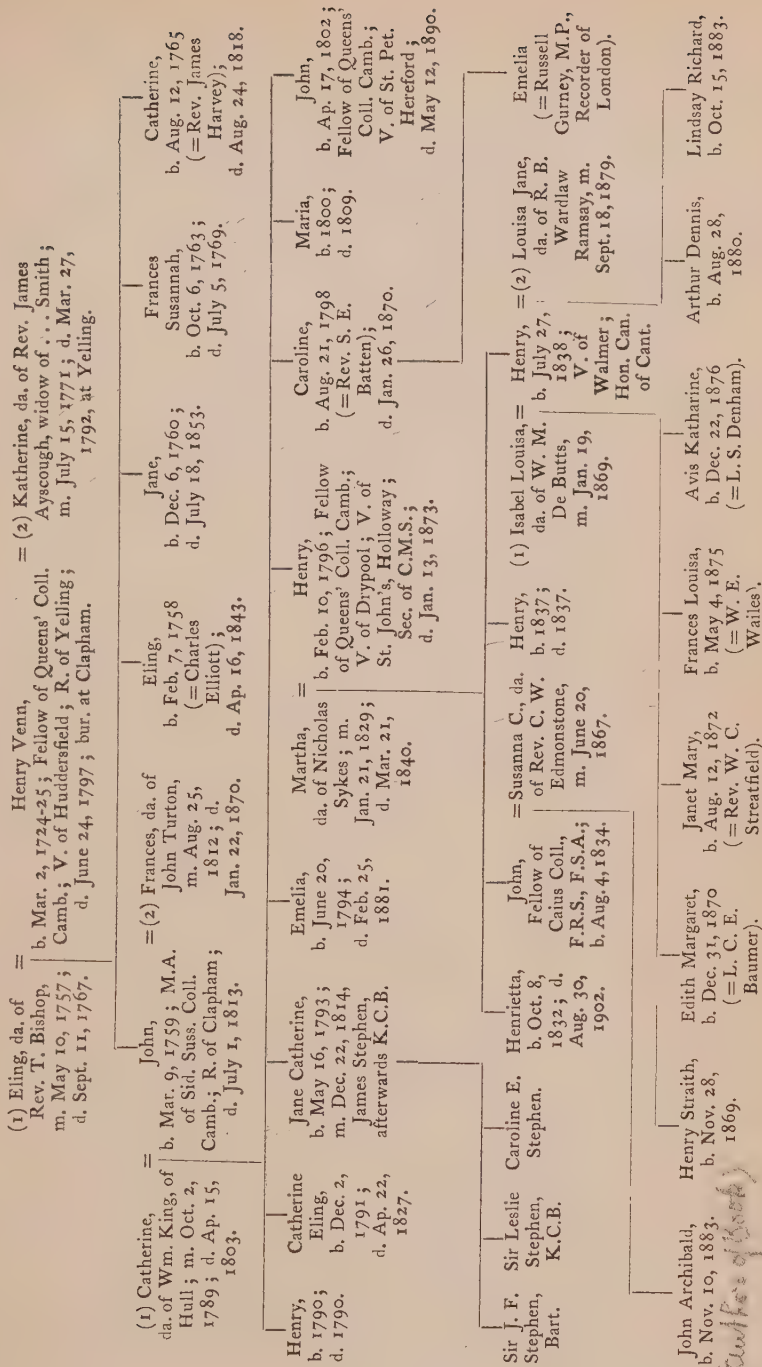 (1) Eling, da. of
Rev. T. Bishop,
m. May 10, 1757;
d. Sept. 11, 1767.
=
Henry Venn,
b. Mar. 2, 1724-25; Fellow of Queens' Coll.
Camb.; V. of Huddersfield; R. of Yelling;
d. June 24, 1797; bur. at Clapham.
= (2) Katherine, da. of Rev. James
Ayscough, widow of . . . Smith;
m. July 15, 1771; d. Mar. 27,
1792, at Yelling.
(1) Catherine,
da. of Wm. King, of
Hull; m. Oct. 2,
1789; d. Ap. 15,
1803.
=
John,
b. Mar. 9, 1759; M.A.
of Sid. Suss. Coll.
Camb.; R. of Clapham;
d. July 1, 1813.
= (2) Frances, da. of
John Turton,
m. Aug. 25,
1812; d.
Jan. 22, 1870.
Eling,
b. Feb. 7, 1758
(= Charles
Elliott);
d. Ap. 16, 1843.
Jane,
b. Dec. 6, 1760;
d. July 18, 1853.
Frances
Susannah,
b. Oct. 6, 1763;
d. July 5, 1769.
Catherine,
b. Aug. 12, 1765
(= Rev. James
Harvey);
d. Aug. 24, 1818.
Henry,
b. 1790;
d. 1790.
Catherine
Eling,
b. Dec. 2,
1791;
d. Ap. 22,
1827.
Jane Catherine,
b. May 16, 1793;
m. Dec. 22, 1814,
James Stephen,
afterwards K.C.B.
Emelia,
b. June 20,
1794;
d. Feb. 25,
1881.
Martha,
da. of Nicholas
Sykes; m.
Jan. 21, 1829;
d. Mar. 21,
1840.
=
Henry,
b. Feb. 10, 1796; Fellow
of Queens' Coll. Camb.;
V. of Drypool; V. of
St. John's, Holloway;
Sec. of C.M.S.;
d. Jan. 13, 1873.
Caroline,
b. Aug. 21, 1798
(= Rev. S. E.
Batten);
d. Jan. 26, 1870.
Maria,
b. 1800;
d. 1809.
John,
b. Ap. 17, 1802;
Fellow of Queens'
Coll. Camb.;
V. of St. Pet.
Hereford;
d. May 12, 1890.
Sir J. F.
Stephen,
Bart.
Sir Leslie
Stephen,
K.C.B.
Caroline E.
Stephen.
Henrietta,
b. Oct. 8,
1832; d.
Aug. 30,
1902.
John,
Fellow of
Caius Coll.,
F.R.S., F.S.A.;
b. Aug. 4, 1834.
= Susanna C., da.
of Rev. C. W.
Edmonstone,
m. June 20,
1867.
Henry,
b. 1837;
d. 1837.
(1) Isabel Louisa,
da. of W. M.
De Butts,
m. Jan. 19,
1869.
=
Henry,
b. July 27,
1838;
V. of
Walmer;
Hon. Can.
of Cant.
= (2) Louisa Jane,
da. of R. B.
Wardlaw
Ramsay, m.
Sept. 18, 1879.
Emelia
(= Russell
Gurney, M.P.,
Recorder of
London).
John Archibald,
b. Nov. 10, 1883.
Author of Book
Henry Straith,
b. Nov. 28,
1869.
Edith Margaret,
b. Dec. 31, 1870
(= L. C. E.
Baumer).
Janet Mary,
b. Aug. 12, 1872
(= Rev. W. C.
Streatfield).
Frances Louisa,
b. May 4, 1875
(= W. E.
Wailes).
Avis Katharine,
b. Dec. 22, 1876
(= L. S. Denham).
Arthur Dennis,
b. Aug. 28,
1880.
Lindsay Richard,
b. Oct. 15, 1883.